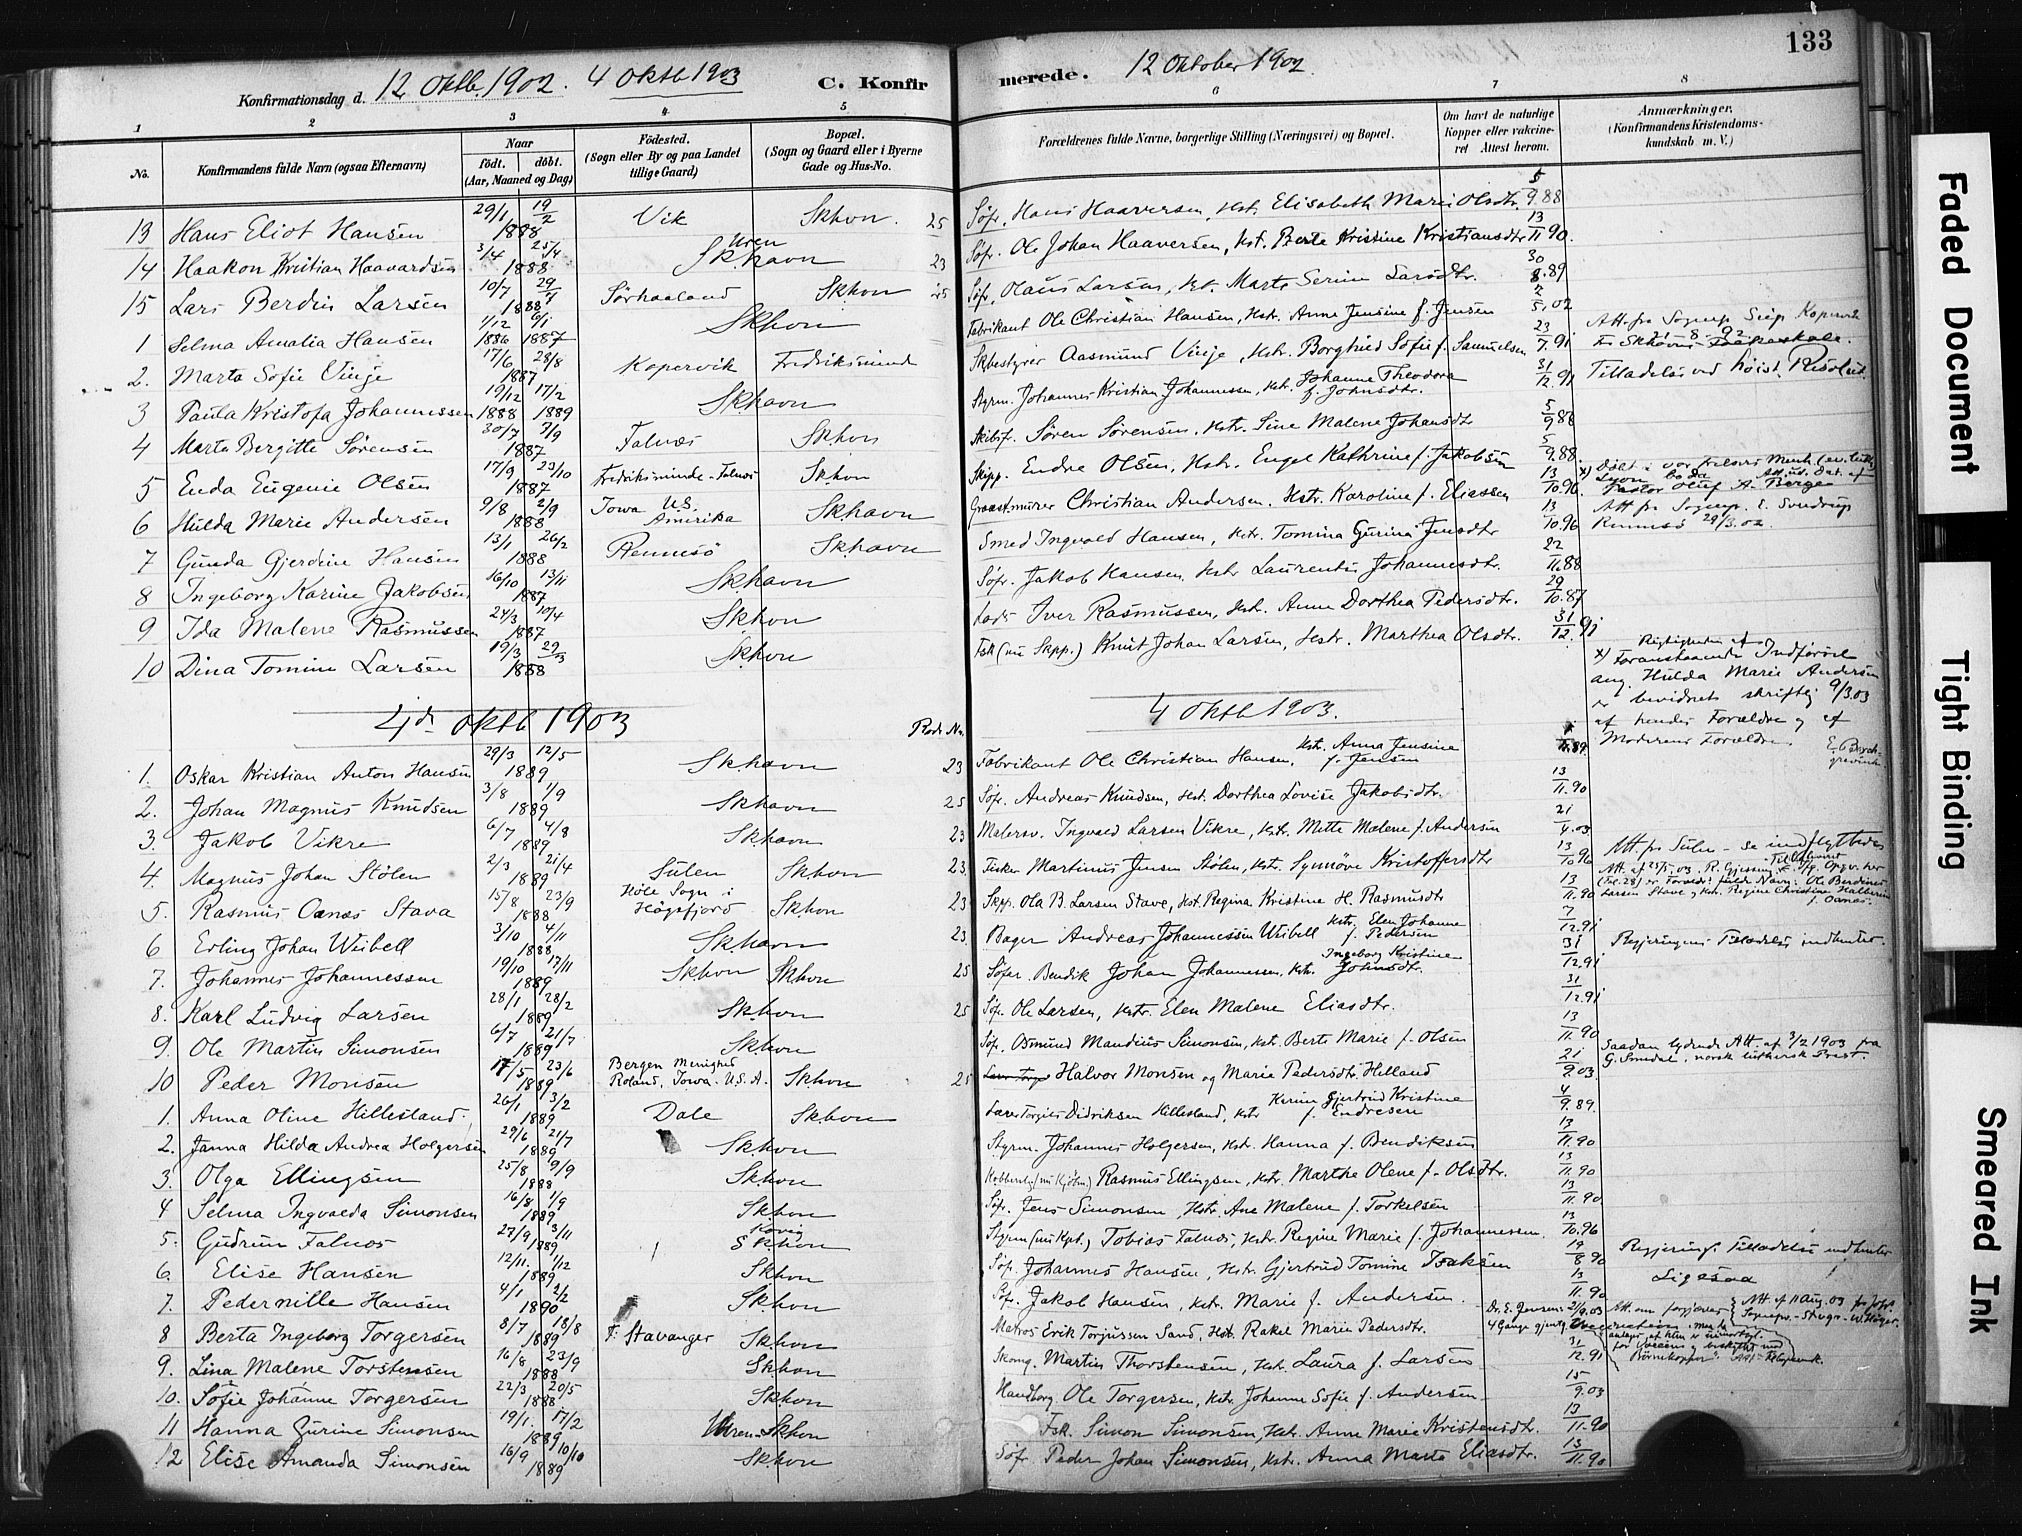 133
12 Oktb. 1902. 4 Oktb 1903
12 Oktober 1902
Konfirmationsdag d.
C. Konfir
merede.
1 2 3 4 5 6 7 8
No.
Konfirmandens fulde Navn (ogsaa Efternavn)
Naar
født. døbt.
(Aar, Maaned og Dag)
Fødested.
(Sogn eller By og paa Landet
tillige Gaard)
Bopæl.
(Sogn og Gaard eller i Byerne
Gade og Hus-No.
Forældrenes fulde Navne, borgerlige Stilling (Næringsvei) og Bopæl.
Om havt de naturlige
Kopper eller vakcine-
ret Attest herom.
Anmærkninger.
(Konfirmandens Kristendoms-
kundskab m. V.)
13 Hans Eliot Hansen 29/1 19/2 1888 Vik Skhvn. 25 Søfr. Hans Haaversen, Hst. Elisabeth Marie Olsdtr. 5/9.88
14 Haakon Kristian Haavardsen 3/4 25/4 1888 Uren Skhavn 23 Søfr. Ole Johan Haaversen, Hst. Berte Kristine Kristiansdtr 13/11 90.
15 Lars Berdin Larsen 10/7 29/7 1888 Sørhaaland Skhvn 25 Søfr. Olaus Larsen, Hst. Marte Serine Larsdtr. 30/8.89
1 Selma Amalia Hansen 1/12 1886 6/1 1887 Skhvn Fabrikant Ole Christian Hansen, Hstr. Anne Jensine f. Jensen 2/5.02
2. Marta Sofie Vinje 17/6 28/8 1887 Kopervik Fredriksminde Skbestyrer Aasmund Vinje, Hstr. Borghild Sofie f. Samuelsen 23/7.91 Att. fra Sogнepr. Kopervik 21-8-92
3 Paula Kristofa Johannessen 19/12 1888 17/2 1889 Skhavn Styrm. Johannes Kristian Johannessen, Hstr. Johanne Theodora f. Johnsdtr. 31/12.91 Tilladelse ved høist. Resolut.
4 Marta Bergitte Sørensen 30/7 7/9 1887 Falnæs Skhvn Skibsf. Søren Sørensen, Hstr. Sine Malene Johansdtr 5/9 88
5 Enda Eugenie Olsen 17/9 23/10 1887 Fredriksminde-Falnæs Skhvn Skipp. Endre Olsen, Hstr. Engel Kathrine f. Jakobsen 5/9.88
6 Hulda Marie Andersen 9/8 2/9 1888 Iowa U.S. Amerika Skhavn Graast.murer Christian Andersen. Hstr. Karoline f. Eliassen 13/10.96 x) Døbt i vor frelsers Menh. Pastor Oluf A. Bergee
7 Gunda Gjerdine Hansen 13/1 26/2 1888 Rennesø Skhavn Smed Ingvald Hansen, Hstr. Tomina Gurina Jensdtr 13/10.96 Att. fra Sognepr. E. Svendrup Rennesø 29/3.02.
8 Ingeborg Karine Jakobsen 16/10 13/11 1887 Skhavn Søfr. Jakob Hansen, Hstr Laurentse Johannesdtr. 22/11.88
9 Ida Malene Rasmussen 24/3 10/4 1887 Skhvn Lods Iver Rasmussen, Hst. Anne Dorthea Pedersdtr. 29/10.87
10 Dina Tomine Larsen 19/3 29/3 1888 Skhvn Fsk (nu Skpp.) Knut Johan Larsen, Hstr. Marthea Olsdtr. 31/12 91
Rigtigheden af
x) Foranstaaende Indførsel
ang. Hulda Marie Andersen
er bevidnet skriftlig 9/3.03
af hendes Forældre og af
Moderens Forældre.
4de Oktb 1903
4 Oktb 1903.
Rode Nr.
1. Oskar Kristian Anton Hansen 29/3 12/5 1889 Skhavn 23 Fabrikant Ole Christian Hansen, Hstr. Anna Jensine f. Jensen
2. Johan Magnus Knudsen 3/8 1/9 1889 Skhavn 25 Søfr. Andreas Knudsen, Hst. Dorthea Lovise Jakobsdtr. 13/11.90
3. Jakob Vikre 6/7 4/8 1889 Skhavn 23 Malersv. Ingvald Larsen Vikre, Hstr. Mette Malene f. Andersen 21/4.03
4. Magnus Johan Stølen 2/3 21/4 1889 Sulen Skhvn 23. Fisker Martinus Jensen Stølen, Hstr. Synnøve Kristoffersdtr 13/10.96 Att. fra Sulen - se indflyttede
5. Rasmus Oanæs Stava 15/8 23/9 1888 Høle Sogn i Høgsfjord Skhvn 23 Skpp. Ola B. Larsen Stave, Hst. Regina Kristine H. Rasmusdtr 13/11.90 Larsen Stave og Hstr. Regine Christine f. Oanæs.
6 Erling Johan Weibell 3/10 4/11 1888 Skhavn 23. Bager Andreas Johannessen Weibell Hstr. Elen Johanne f. Pedersen 7/12.91 Regjeringens Tilladelse indhentet.
7. Johannes Johannessen 19/10 17/11 1889 Skhvn Skhvn 25 Søfar. Bendik Johan Johannessen, Hstr. Ingeborg Kristine Johnsdtr. 31/12.91
8. Karl Ludvig Larsen 28/1 28/2 1889 Skhvn 25 Søfr. Ole Larsen, Hstr. Elen Malene Eliasdtr. 31/12.91
9. Ole Martin Simonsen 6/7 21/7 1889 Skhvn Søfr. Osmund Maudius Simonsen, Hst. Berte Marie f. Olsen 13/11.90
10 Peder Monsen 17/5 23/6 1889 Bergen Menighed Roland, Iowa. U.S.A. Skhvn 25 Halvor Monsen og Marie Pedersdtr. Helland 21/9.03 Saadan lydende Att. af 3/2 1903 fra G. Smedal, norsk luthersk Prest.
1. Anna Oline Hillesland 26/1 3/2 1889 Dale Skhvn Torgils Didriksen Hillesland, Hstr Karine Gjertrud Kristine f. Endresen 4/9.89.
2. Janna Hilda Andrea Holgersen 29/6 21/7 1889 Skhvn Styrm. Johannes Holgersen, Hstr. Hanna f. Bendiksen 13/11.90
3. Olga Ellingsen 25/8 9/9 1888 Skhvn Kobberslg. (nu Kjøbm.) Rasmus Ellingsen, Hstr. Marthe Olene f. Olsdtr. 13/11.90
4 Selma Ingvalda Simonsen 16/8 1/9 1889 Skhvn Søfr. Jens Simonsen Hstr. Ane Malene f. Torkelsen 13/11.90
5. Gudrun Falnæs 27/9 3/11 1889 Skhvn Styrm (nu Kpt.) Tobias Falnæs, Hstr Regine Marie f. Johannessen. 13/10.96
6. Elise Hansen 12/11. 1/12 1889 Skhvn Søf. Johannes Hansen, Hstr. Gjertrud Tomine Isaksen 19/8 90 Regjering. Tilladelse indhentet
7. Pedernille Hansen 4/1 2/2 1890 Skhvn Søfr. Jakob Hansen, Hstr. Marie f. Andersen 13/11.90 Ligesaa
8 Berta Ingeborg Torgersen 8/7 18/8 1889 F. Stavanger Skhvn Matros Erik Torjussen Sand, Hst. Rakel Marie Pedersdtr. Dr. E. Jensens 21/9.03 4 Gange Att. af 11 Aug. 03
9. Lina Malene Torstensen 16/8 23/9 1888 Skhvn Skomg. Martin Thorstensen, Hstr. Laura f. Larsen 31/12.91
10. Sofie Johanne Torgersen 22/3 20/5 1888 Skhvn Handlbg. Ole Torgersen, Hstr Johanne Sofie f. Andersen 15/9.03
11 Hanna Gurine Simonsen 19/1. 17/2 1889 Uren-Skhvn Fsk. Simon Simonsen, Hstr. Anne Marie Kristensdtr. 13/11-90
12 Elise Amanda Simonsen 16/9 10/10 1889 Skhvn Søfr Peder Johan Simonsen, Hstr. Anna Marta Eliasdtr. 13/11.90
Faded Document
Tight Binding
Smeared Ink